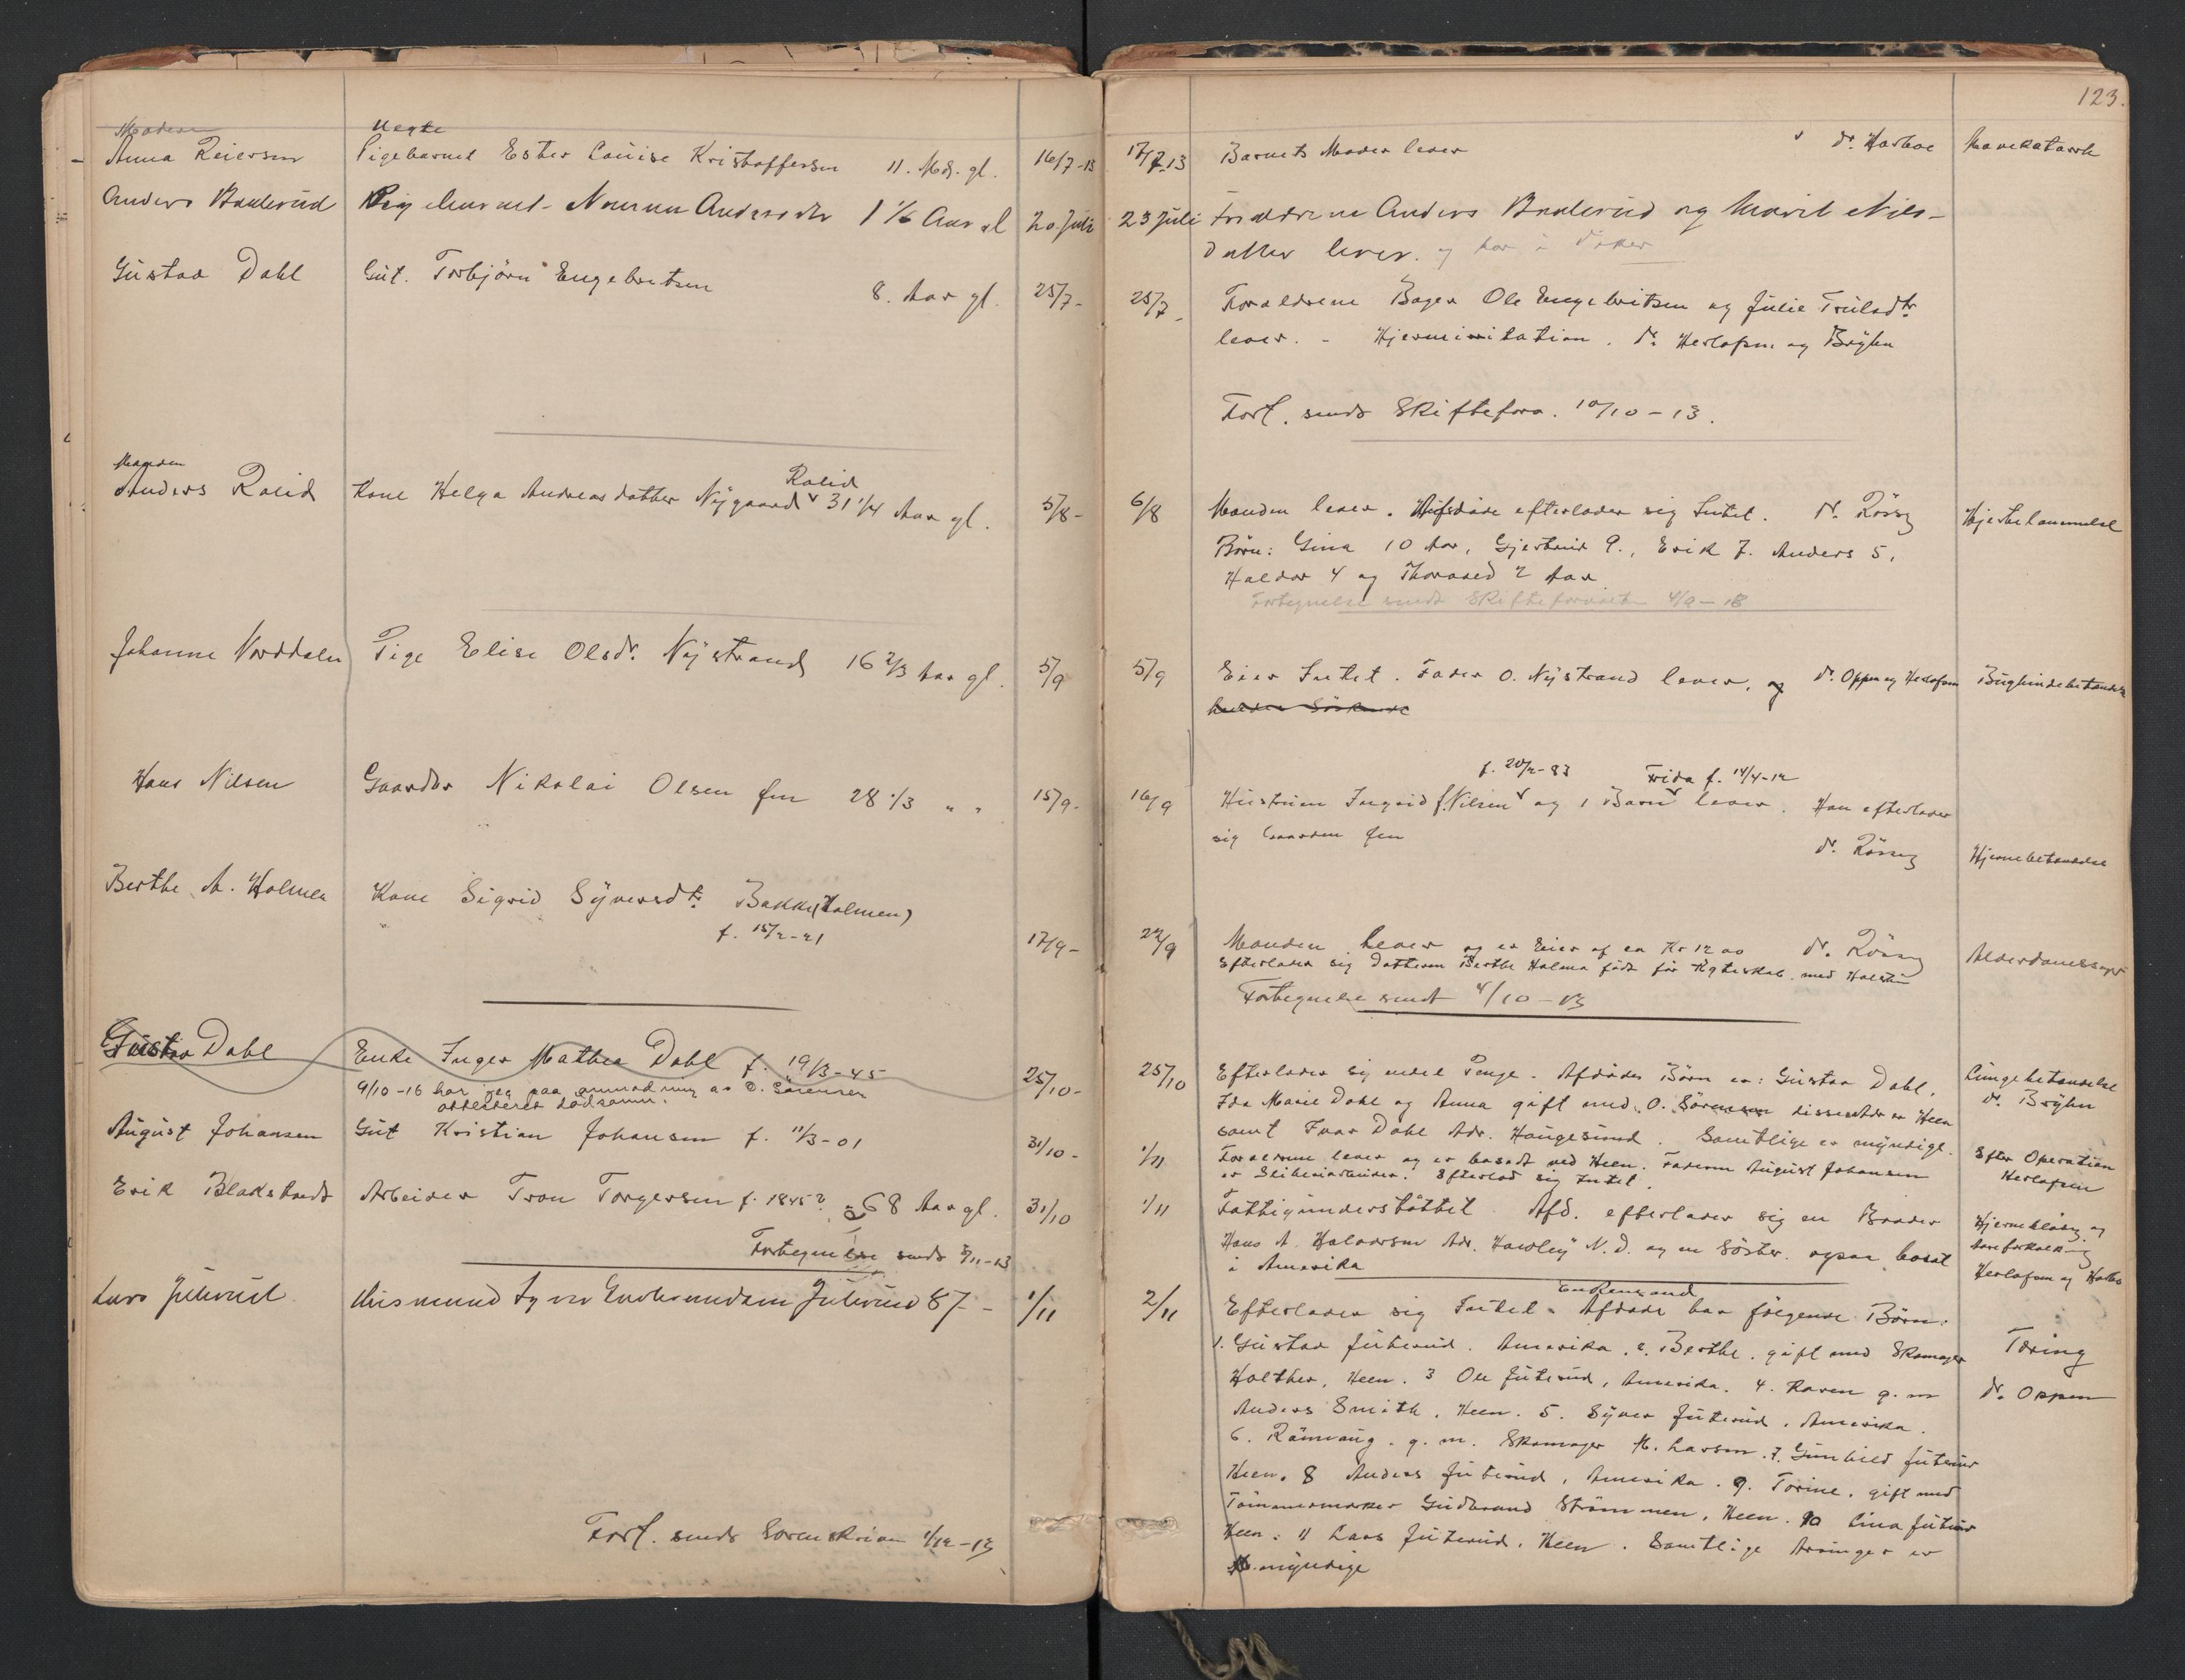 123.
Moderen
uegte
Anna Reiersen Pigebarnet Ester Louise Kristoffersen 11. Mdr. gl. 16/7-13
17/7.13 Barnets Moder lever dr. Harboe Mavekatarrh
Anders Braaterud Pigebarnet Andersdtr 1 1/2 Aar gl 20 Juli
23 Juli Forældrene Anders og Marit Nils-
datter lever. og bor i
Gustav Dahl Gut. Torbjörn Engebretsen 8. Aar gl. 25/7-
25/7- Forældrene Bager Ole Engebritsen og Julie Trulsdtr.
lever. - Hjerneirritation. dr. Herlofsen og Brÿhn
Fort. sendt Skifteforv. 10/10-13.
Manden
Rolid
Anders Rolid Kone Helga Andreasdatter Nÿgaard v 31 1/4 Aar gl. 5/8-
6/8 Manden lever. Afdøde efterlader sig Intet. dr. Rössy Hjertelammelse
Börn: Gina 10 Aar, Gjertrud 9., Erik 7. Anders 5,
Haldor 4 og Thorvald 2 Aar
Fortegnelse sendt Skifteforvalter 4/9-13
Johanne Norddalen Pige Elise Olsdr. Nÿstrand 16 2/3 Aar gl. 5/9
5/9 Eier Intet. Fader O. Nÿstrand lever, og dr. Oppen og Herlofsen Bughindebetændelse
f. 20/2-83 Frida f. 14/4-12
Hans Nilsen Gaardbr Nikolai Olsen fen 28 1/3 " " 15/9-
16/9 Hustruen Ingrid f. Nilsen v og 1 Barn v lever. Han efterlader
sig Gaarden fen
dr. Rössy Hjernebetændelse
Berthe A. Holmen Kone Sigrid Sÿversdtr. Bakke (Holmen)
f. 15/2-21 17/9-
22/9 Manden lever og er Eier af ca Kr 1200 dr. Rössy Alderdomssvaghed
Efterlader sig Datteren Berthe Holmen født før Ægteskab. med
Fortegnelse sendt 4/10-13
Gustav Dahl Enke Inger Mathea Dahl f. 19/3-45 25/10-
9/10-16 har jeg paa anmodning av O. Sörensen
attesteret dödsanm.
25/10 Efterlader sig endel Penge. Afdödes Börn er: Gustav Dahl, Lungebetændelse
Ida Marie Dahl og Anna gift med O. Sörensen disses Adr. er Heen dr. Brÿhn
samt Ivar Dahl Adr. Haugesund. Samtlige er mÿndige.
August Johansen Gut Kristian Johansen f. 11/3-01 31/10-
1/11 Forældrene lever og er bosadt ved Heen. Faderen August Johansen Efter Operation
er Sliberiarbeider. Efterlod sig Intet. Herlofsen
Erik Blakstvedt Arbeider Tron Torgersen f. 1845? = 68 Aar gl. 31/10
1/11 Fattigunderstöttet. Afd. efterlader sig en Broder Hjerneblödn. og
Hans A. Halvorsen Adr. Hawley N. D. og en Söster ogsaa bosat Aareforkalkning
i Amerika Herlofsen og Harboe
Fortegnelse sendt 5/11-13
Enkemand
Lars Juterud Husmand Syver Gudbrandsen Juterud 87- 1/11
2/11 Efterlader sig Intet. Afdöde har følgende Börn:
1. Gustav Juterud. Amerika. 2. Berthe. gift med Skomager Tæring
Holther, Heen. 3 Ole Juterud, Amerika. 4. Karen g. m dr. Oppen
Anders Smith, Heen. 5. Sÿver Juterud, Amerika.
6. Rönnaug. g. m. Skomager H. Larsen. 7. Gunhild Juterud
Heen. 8 Anders Juterud, Amerika. 9. Torine, gift med
Tömmermerker Gudbrand Strömmen, Heen. 10 Lina Juterud
Heen. 11 Lars Juterud, Heen. Samtlige Arvinger er
mÿndige
Fort. sendt Sorenskriver 1/12-13